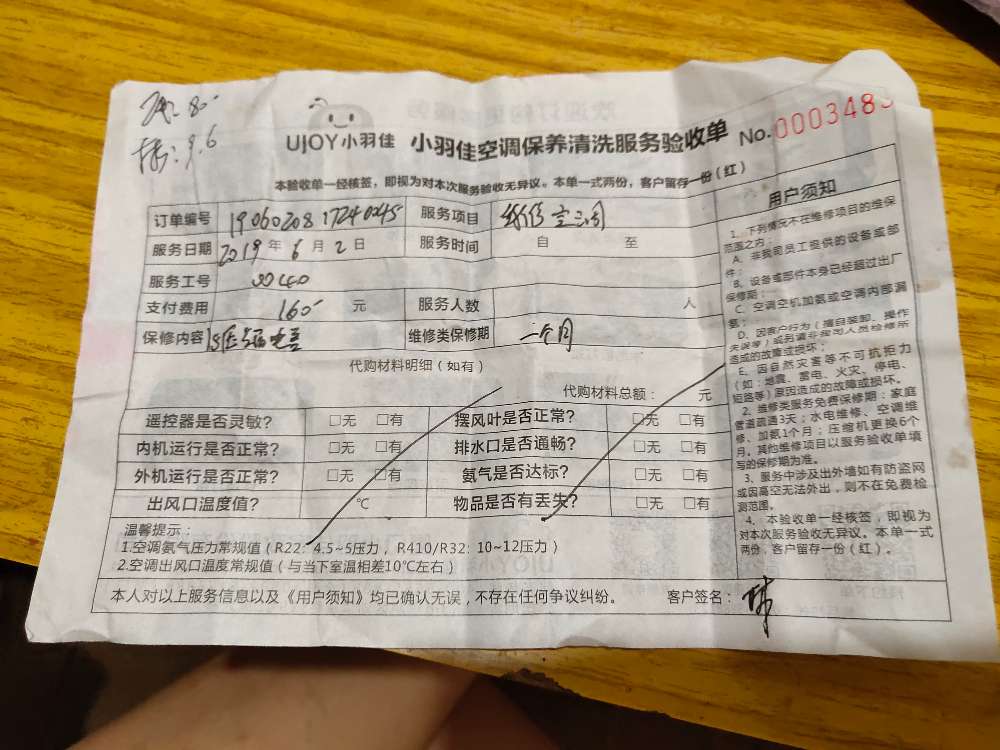 80
UJOY小羽佳 小羽佳空调保养清洗服务验收单 No.0003483
本验收单一经核签，即视为对本次服务验收无异议。本单一式两份，客户留存一份（红）
订单编号 1906020817240245 服务项目 维修空调
服务日期 2019年6月2日 服务时间 自 至
服务工号
支付费用 160 元 服务人数 人
保修内容 维类保修期 一个月
代购材料明细（如有）
代购材料总额： 元
遥控器是否灵敏？ □无 □有 摆风叶是否正常？ □无 □有
内机运行是否正常？ □无 □有 排水口是否通畅？ □无 □有
外机运行是否正常？ □无 □有 氨气是否达标？ □无 □有
出风口温度值？ ℃ 物品是否有丢失？ □无 □有
温馨提示：
1.空调氨气压力常规值（R22: 4.5~5压力，R410/R32: 10~12压力）
2.空调出风口温度常规值（与当下室温相差10℃左右）
本人对以上服务信息以及《用户须知》均已确认无误，不存在任何争议纠纷。 客户签名：
用户须知
1、下列情况不在维修项目的维保
范围之内：
A、非我司员工提供的设备或部
件；
B、设备或部件本身已经超过出厂
保修期；
C、空调空机加氨或空调内部漏
氨；
D、因客户行为（擅自装卸、操作
失误等）或另请非我司人员检修所
造成的故障或损坏；
E、因自然灾害等不可抗拒力
（如：地震、雷电、火灾、停电、
短路等）原因造成的故障或损坏。
2、维修类服务免费保修期：家庭
管道疏通3天；水电维修、空调维
修、加氨1个月；压缩机更换6个
月。其他维修项目以服务验收单填
写的保修期为准。
3、服务中涉及出外墙如有防盗网
或因高空无法外出，则不在免费检
测范围。
4、本验收单一经核签，即视为
对本次服务验收无异议。本单一式
两份，客户留存一份（红）。